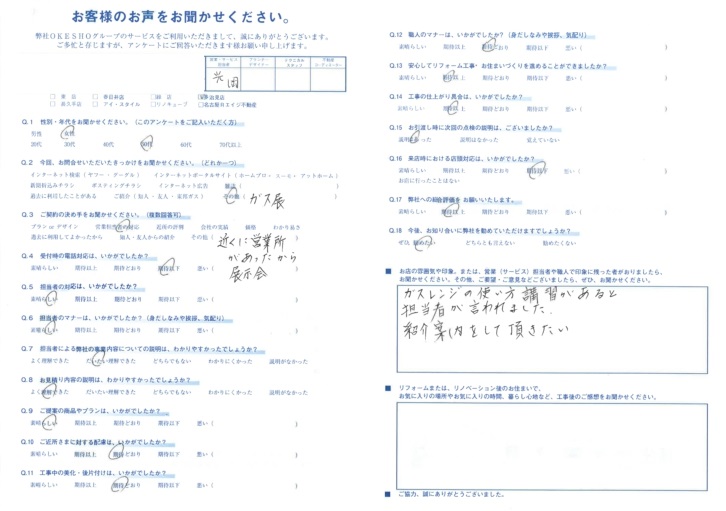 お客様のお声をお聞かせください。
弊社OKESHOグループのサービスをご利用いただきまして、誠にありがとうございます。
ご多忙と存じますが、アンケートにご回答いただきます様お願い申し上げます。
Q.1 性別・年代をお聞かせください。（このアンケートをご記入いただく方）
男性 女性
20代 30代 40代 50代 60代 70代以上
Q.2 今回、お問合せいただいたきっかけをお聞かせください。（どれか一つ）
インターネット検索（ヤフー・グーグル） インターネットポータルサイト（ホームプロ・スーモ・アットホーム）
新聞折込みチラシ ポスティングチラシ インターネット広告 雑誌（ ）
過去に利用したことがある ご紹介（知人・友人・東邦ガス） その他（ ガス展 ）
Q.3 ご契約の決め手をお聞かせください。（複数回答可）
プラン or デザイン 営業担当者の対応 近所の評判 会社の実績 価格 わかり易さ
過去に利用してよかったから 知人・友人からの紹介 その他（ 近くに営業所 ）
があったから
展示会
Q.4 受付時の電話対応は、いかがでしたか？
素晴らしい 期待以上 期待どおり 期待以下 悪い（ ）
Q.5 担当者の対応は、いかがでしたか？
素晴らしい 期待以上 期待どおり 期待以下 悪い（ ）
Q.6 担当者のマナーは、いかがでしたか？（身だしなみや挨拶、気配り）
素晴らしい 期待以上 期待どおり 期待以下 悪い（ ）
Q.7 担当者による弊社の事業内容についての説明は、わかりやすかったでしょうか？
よく理解できた だいたい理解できた どちらでもない わかりにくかった 説明がなかった
Q.8 お見積り内容の説明は、わかりやすかったでしょうか？
よく理解できた だいたい理解できた どちらでもない わかりにくかった 説明がなかった
Q.9 ご提案の商品やプランは、いかがでしたか？
素晴らしい 期待以上 期待どおり 期待以下 悪い（ ）
Q.10 ご近所さまに対する配慮は、いかがでしたか？
素晴らしい 期待以上 期待どおり 期待以下 悪い（ ）
Q.11 工事中の美化・後片付けは、いかがでしたか？
素晴らしい 期待以上 期待どおり 期待以下 悪い（ ）
Q.12 職人のマナーは、いかがでしたか？（身だしなみや挨拶、気配り）
素晴らしい 期待以上 期待どおり 期待以下 悪い（ ）
Q.13 安心してリフォーム工事・お住まいづくりを進めることができましたか？
素晴らしい 期待以上 期待どおり 期待以下 悪い（ ）
Q.14 工事の仕上がり具合は、いかがでしたか？
素晴らしい 期待以上 期待どおり 期待以下 悪い（ ）
Q.15 お引渡し時に次回の点検の説明は、ございましたか？
説明があった 説明はなかった 覚えていない
Q.16 来店時における店頭対応は、いかがでしたか？
素晴らしい 期待以上 期待どおり 期待以下 悪い（ ）
お店に行ったことはない
Q.17 弊社への総合評価を お願いいたします。
素晴らしい 期待以上 期待どおり 期待以下 悪い（ ）
Q.18 今後、お知り合いに弊社を勧めていただけますでしょうか？
ぜひ、勧めたい どちらとも言えない 勧めたくない
■ お店の雰囲気や印象、または、営業（サービス）担当者や職人で印象に残った者がおりましたら、
お聞かせください。その他、ご要望・ご意見などございましたら、ぜひ、お聞かせください。
ガスレンジの使い方講習があると
担当者が言われました.
紹介案内をして頂きたい
■ リフォームまたは、リノベーション後のお住まいで、
お気に入りの場所やお気に入りの時間、暮らし心地など、工事後のご感想をお聞かせください。
■ ご協力、誠にありがとうございました。